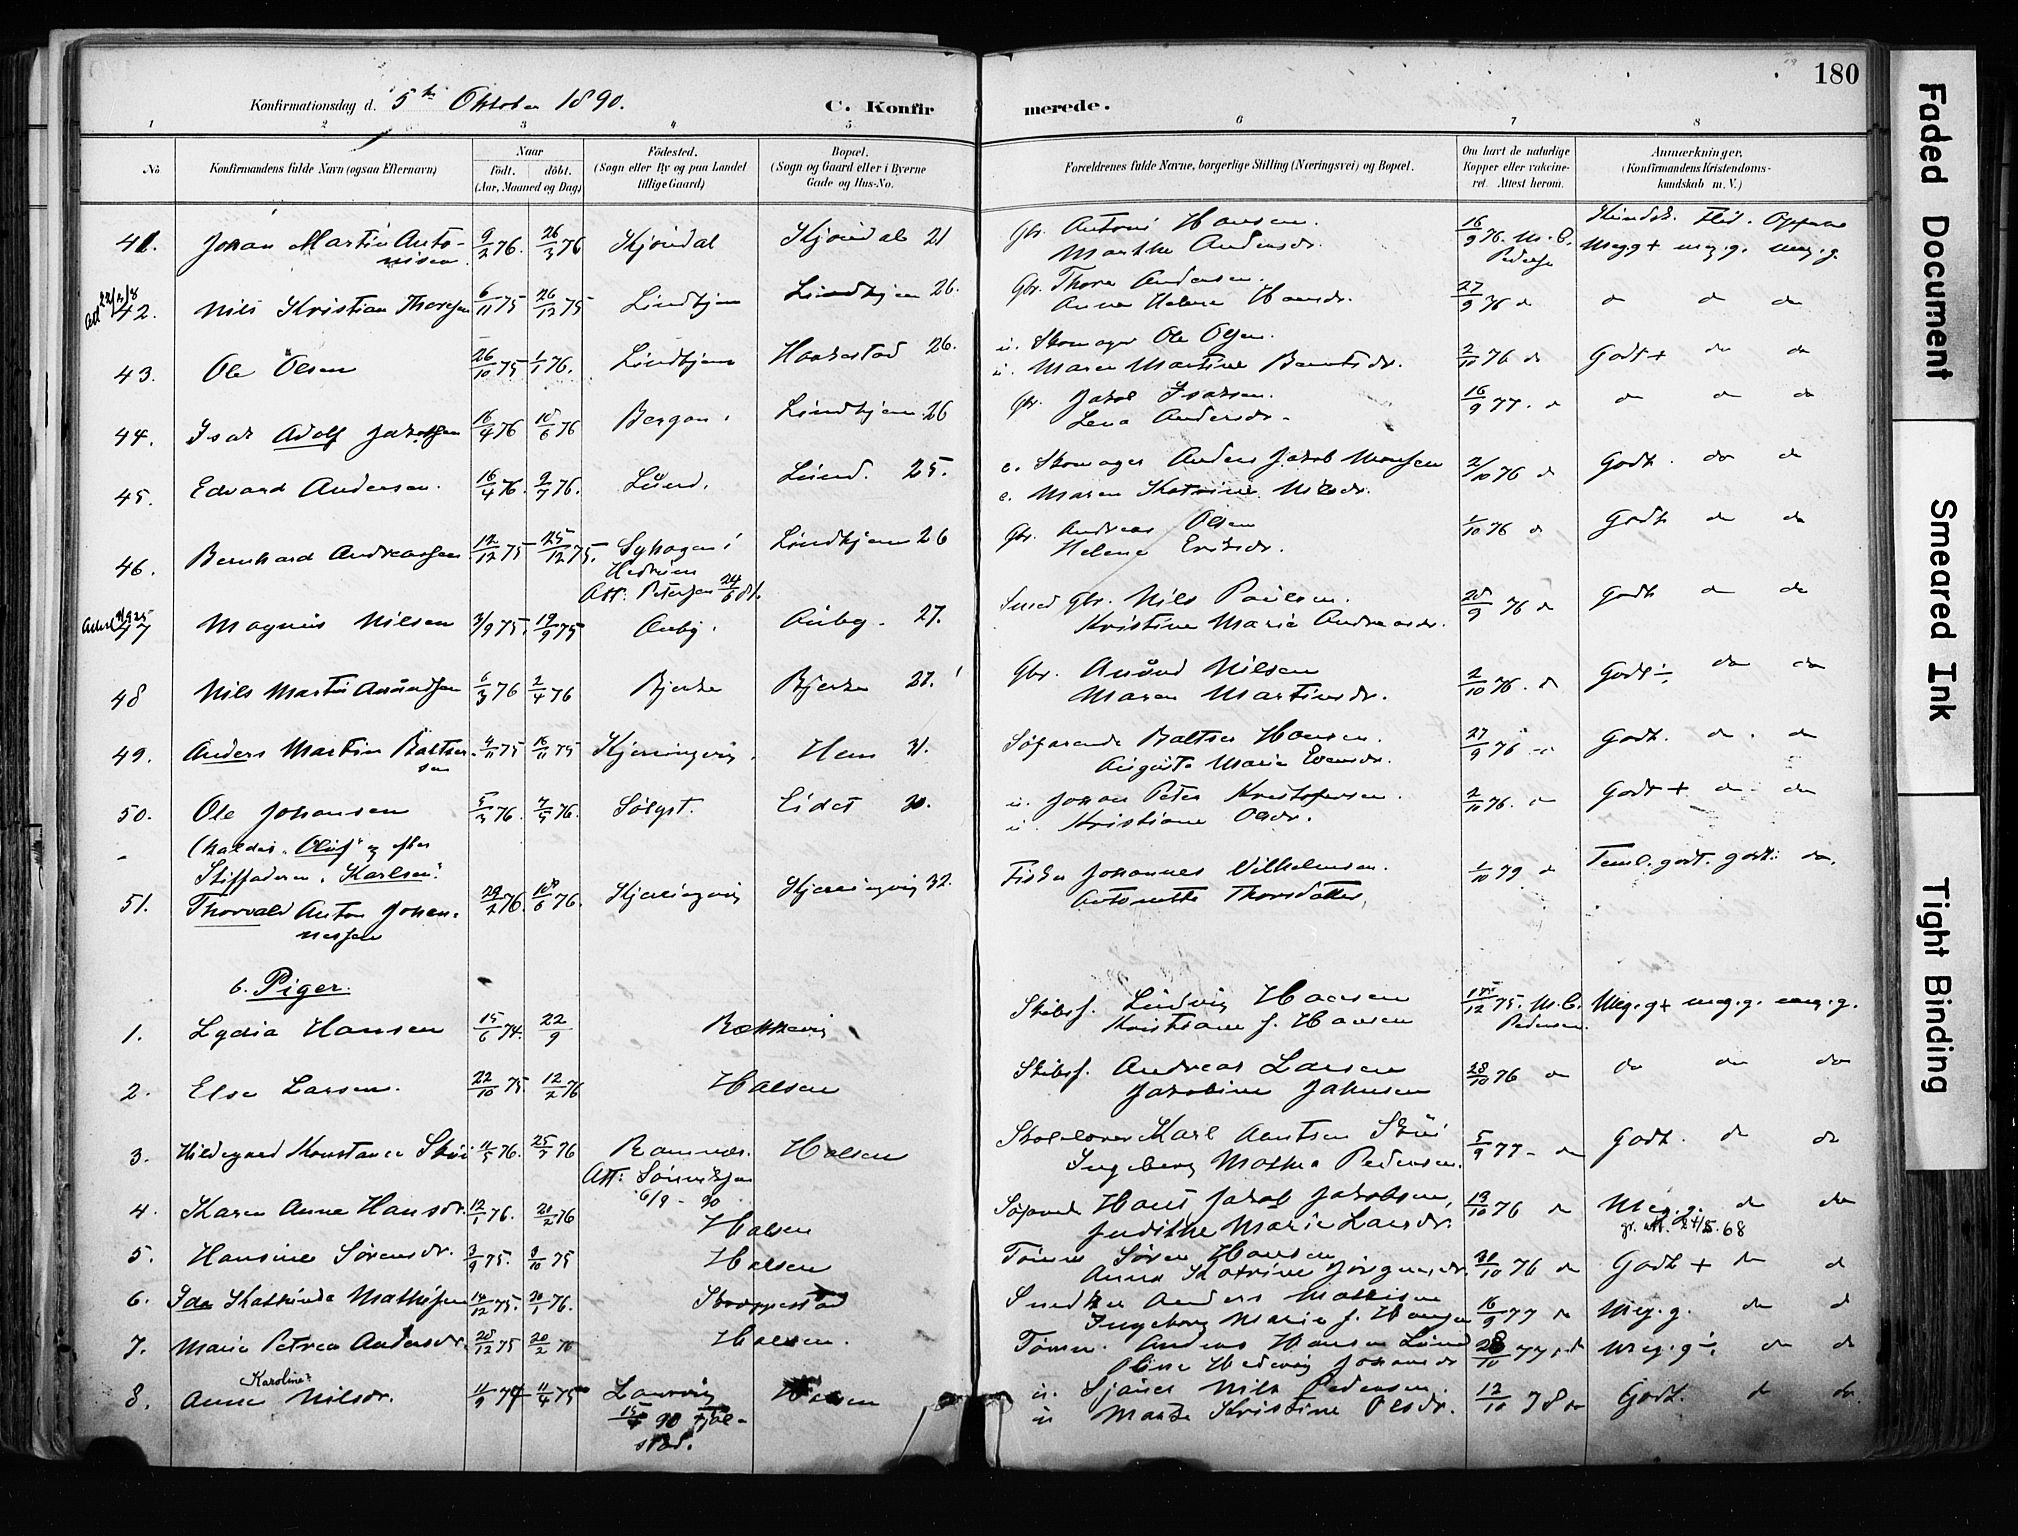 180
Konfirmationsdag d. 5te Oktober 1890.
C. Konfirmerede.
1 2 3 4 5 6 7 8
No
Konfirmandens fulde Navn (ogsaa Efternavn)
Naar
født. døbt.
(Aar, Maaned og Dag)
Fødested.
(Sogn eller By og paa Landet
tillige Gaard)
Bopæl.
(Sogn og Gaard eller i Byerne
Gade og Hus-No.
Forældrenes fulde Navne, borgerlige Stilling (Næringsvei) og Bopæl.
Om havt de naturlige
Kopper eller vakcine-
ret. Attest herom.
Anmærkninger.
(Konfirmandens Kristendoms-
kundskab m. V.)
Kundsk. Flid. Opførs
41. Johan Martin Anto- 9/2 76. 26/3 76 Kjøndal Kjøndal 21 Gbr. Antoni Hansen. 16/9 76. M. C. Meg.g + meg.g. meg.g.
nisen Marthe Andersdr. Pedersen
42. Nils Kristian Thoresen 6/11 75 26/12 75 Lindhjem Lindhjem 26. Gbr. Thore Andersen. 27/9 76 do do do do
Anne Helene Hansdr.
43. Ole Olsen 26/10 75 1/1 76. Lindhjem Haakestad 26. u. Skomager Ole Olsen. 2/10 76 do Godt + do do
u. Maren Martine Berntsdr.
44. Isak Adolf Jakobsen 16/4 76 18/6 76 Bergan Lindhjem 26 Gbr. Jakob Isaksen. 16/9 77. do do do do
Lena Andersdr.
45. Edvard Andersen. 16/4 76. 9/7 76. Lund. Lund. 25. e. Skomager Anders Jakob Monsen 2/10 76 do Godt. do do
e. Maren Katrine Nilsdr.
46. Bernhard Andreassen 12/12 75 25/12 75. Lindhjem 26 Gbr. Andreas Olsen 1/10 76 do Godt do do
Hedrum Helene Eriksdr.
Att. Petersen 24/6 81.
47 Magnus Nilsen 3/9 75. 19/9 75 Auby. Auby. 27. Smed Gbr. Nils Paulsen. 28/9 76 do Godt do do
Kristine Marie Andreasdr.
48 Nils Martin Amundsen 6/3 76 2/4 76 Bjerke Bjerke 27. Gbr. Amund Nilsen 2/10 76. do Godt ÷ do do
Maren Martinsdr.
49. Anders Martin Baltser- 4/11 75 16/11 75 Kjerringvig Hem 31. Søfarende Baltser Hansen. 27/9 76 do Godt. do. do
sen Auguste Marie Evensdr.
50. Ole Johansen 5/3 76. 7/5 76. Sølyst. Eidet 30. u. Johan Peter Kristofersen. 2/10 76. do Godt + do do
(kaldes "Oluf" og efter u. Kristiane Olsdr.
Stiffaderen "Karlsen".
51. Thorvald Anton Johan- 29/2 76. 18/6 76. Kjerringvig Kjerringvig 32. Fisker Johannes Vilhelmsen. 1/10 79 do Teml. godt. godt. do.
nessen Antonette Thorsdatter,
b. Piger.
1. Lydia Hansen 15/6 74. 22/9 Rækkevig Skibsf. Ludvig Hansen 17/12 75. M. C. Meg.g + meg.g. meg.g.
Kristiane J. Hansen Pedersen
2. Else Larsen. 22/10 75 12/2 76 Halsen Skibsf. Andreas Larsen 28/10 76 do do do do
Jakobine Jahnsen
3. Hildegard Konstance Skui 11/5 76. 25/7 76 Ramnæs. Halsen Skolelærer Karl Amtsen Skui 5/9 77 do Godt. do do
Att: 6/9 - 90 Ingeborg Mathea Pedersen.
4. Karen Anne Hansdr. 12/1 76. 20/2 76 Halsen Søfarende Hans Jakob Jakobsen, 13/10 76 do Meg.g. do do
Judithe Marie Larsdr.
5. Hansine Sørensdr. 3/9 75. 3/10 75 Halsen Tømm. Søren Hansen 30/10 76 do Godt + do do
Anna Katrine Jørgensdr.
6. Ida Kathinda Mathisen 14/12 75. 20/1 76. Skreppestad Snedker Anders Mathisen 16/9 77 do Meg.g. do do
Ingeborg Marie J. Hansen
7. Marie Petrea Andersdr. 28/12 75 20/2 76 Halsen. Tømm. Anders Hansen Lund 28/10 77 do Meg.g ÷. do do
Oline Hedevig Johansdr
8. Anne Karoline Nilsdr. 11/9 74 11/4 75 Laurvig Halsen u. Sjauer Nils Pedersen. 12/10 78 do Godt. do do
90 Fjæl- u Marthe Kristine Olsdr.
stad.
Faded Document
Smeared Ink
Tight Binding